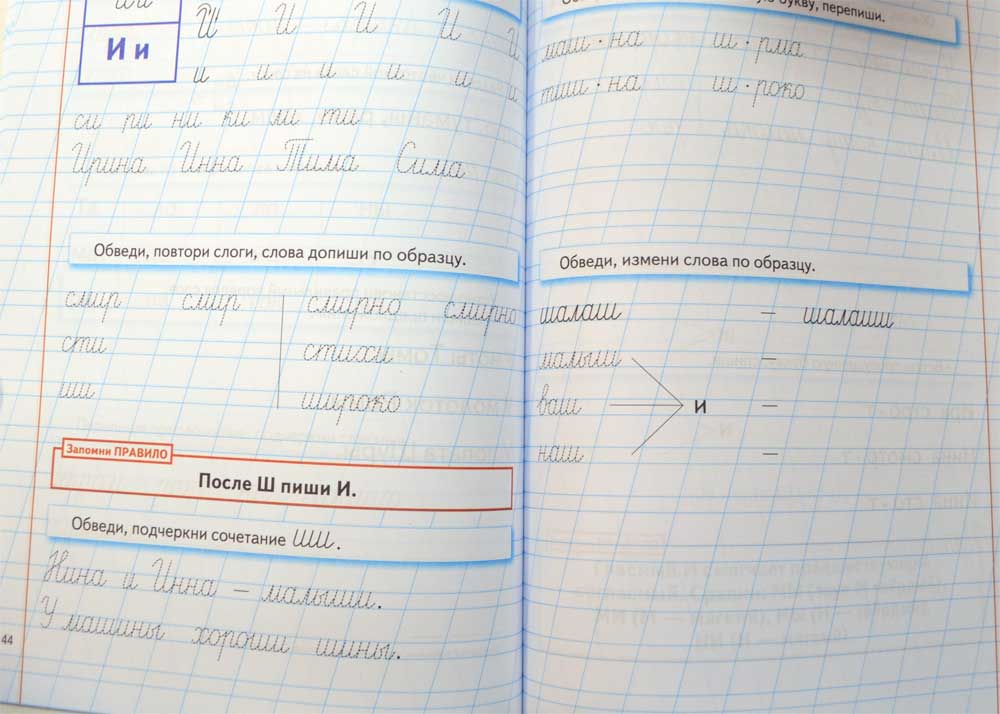 И и
И И И И И
и и и и и и
си ри ни ки ли ти
Ирина Инна Тима Сима
Обведи, повтори слоги, слова допиши по образцу.
смир смир смирно смирно
сти стихи
ши широко
Запомни ПРАВИЛО
После Ш пиши И.
Обведи, подчеркни сочетание ши.
Нина и Инна – малыши.
У машины хороши шины.
44
букву, перепиши.
маш·на ш·рма
тиш·на ш·роко
Обведи, измени слова по образцу.
шалаш – шалаши
малыш –
ваш и –
наш –